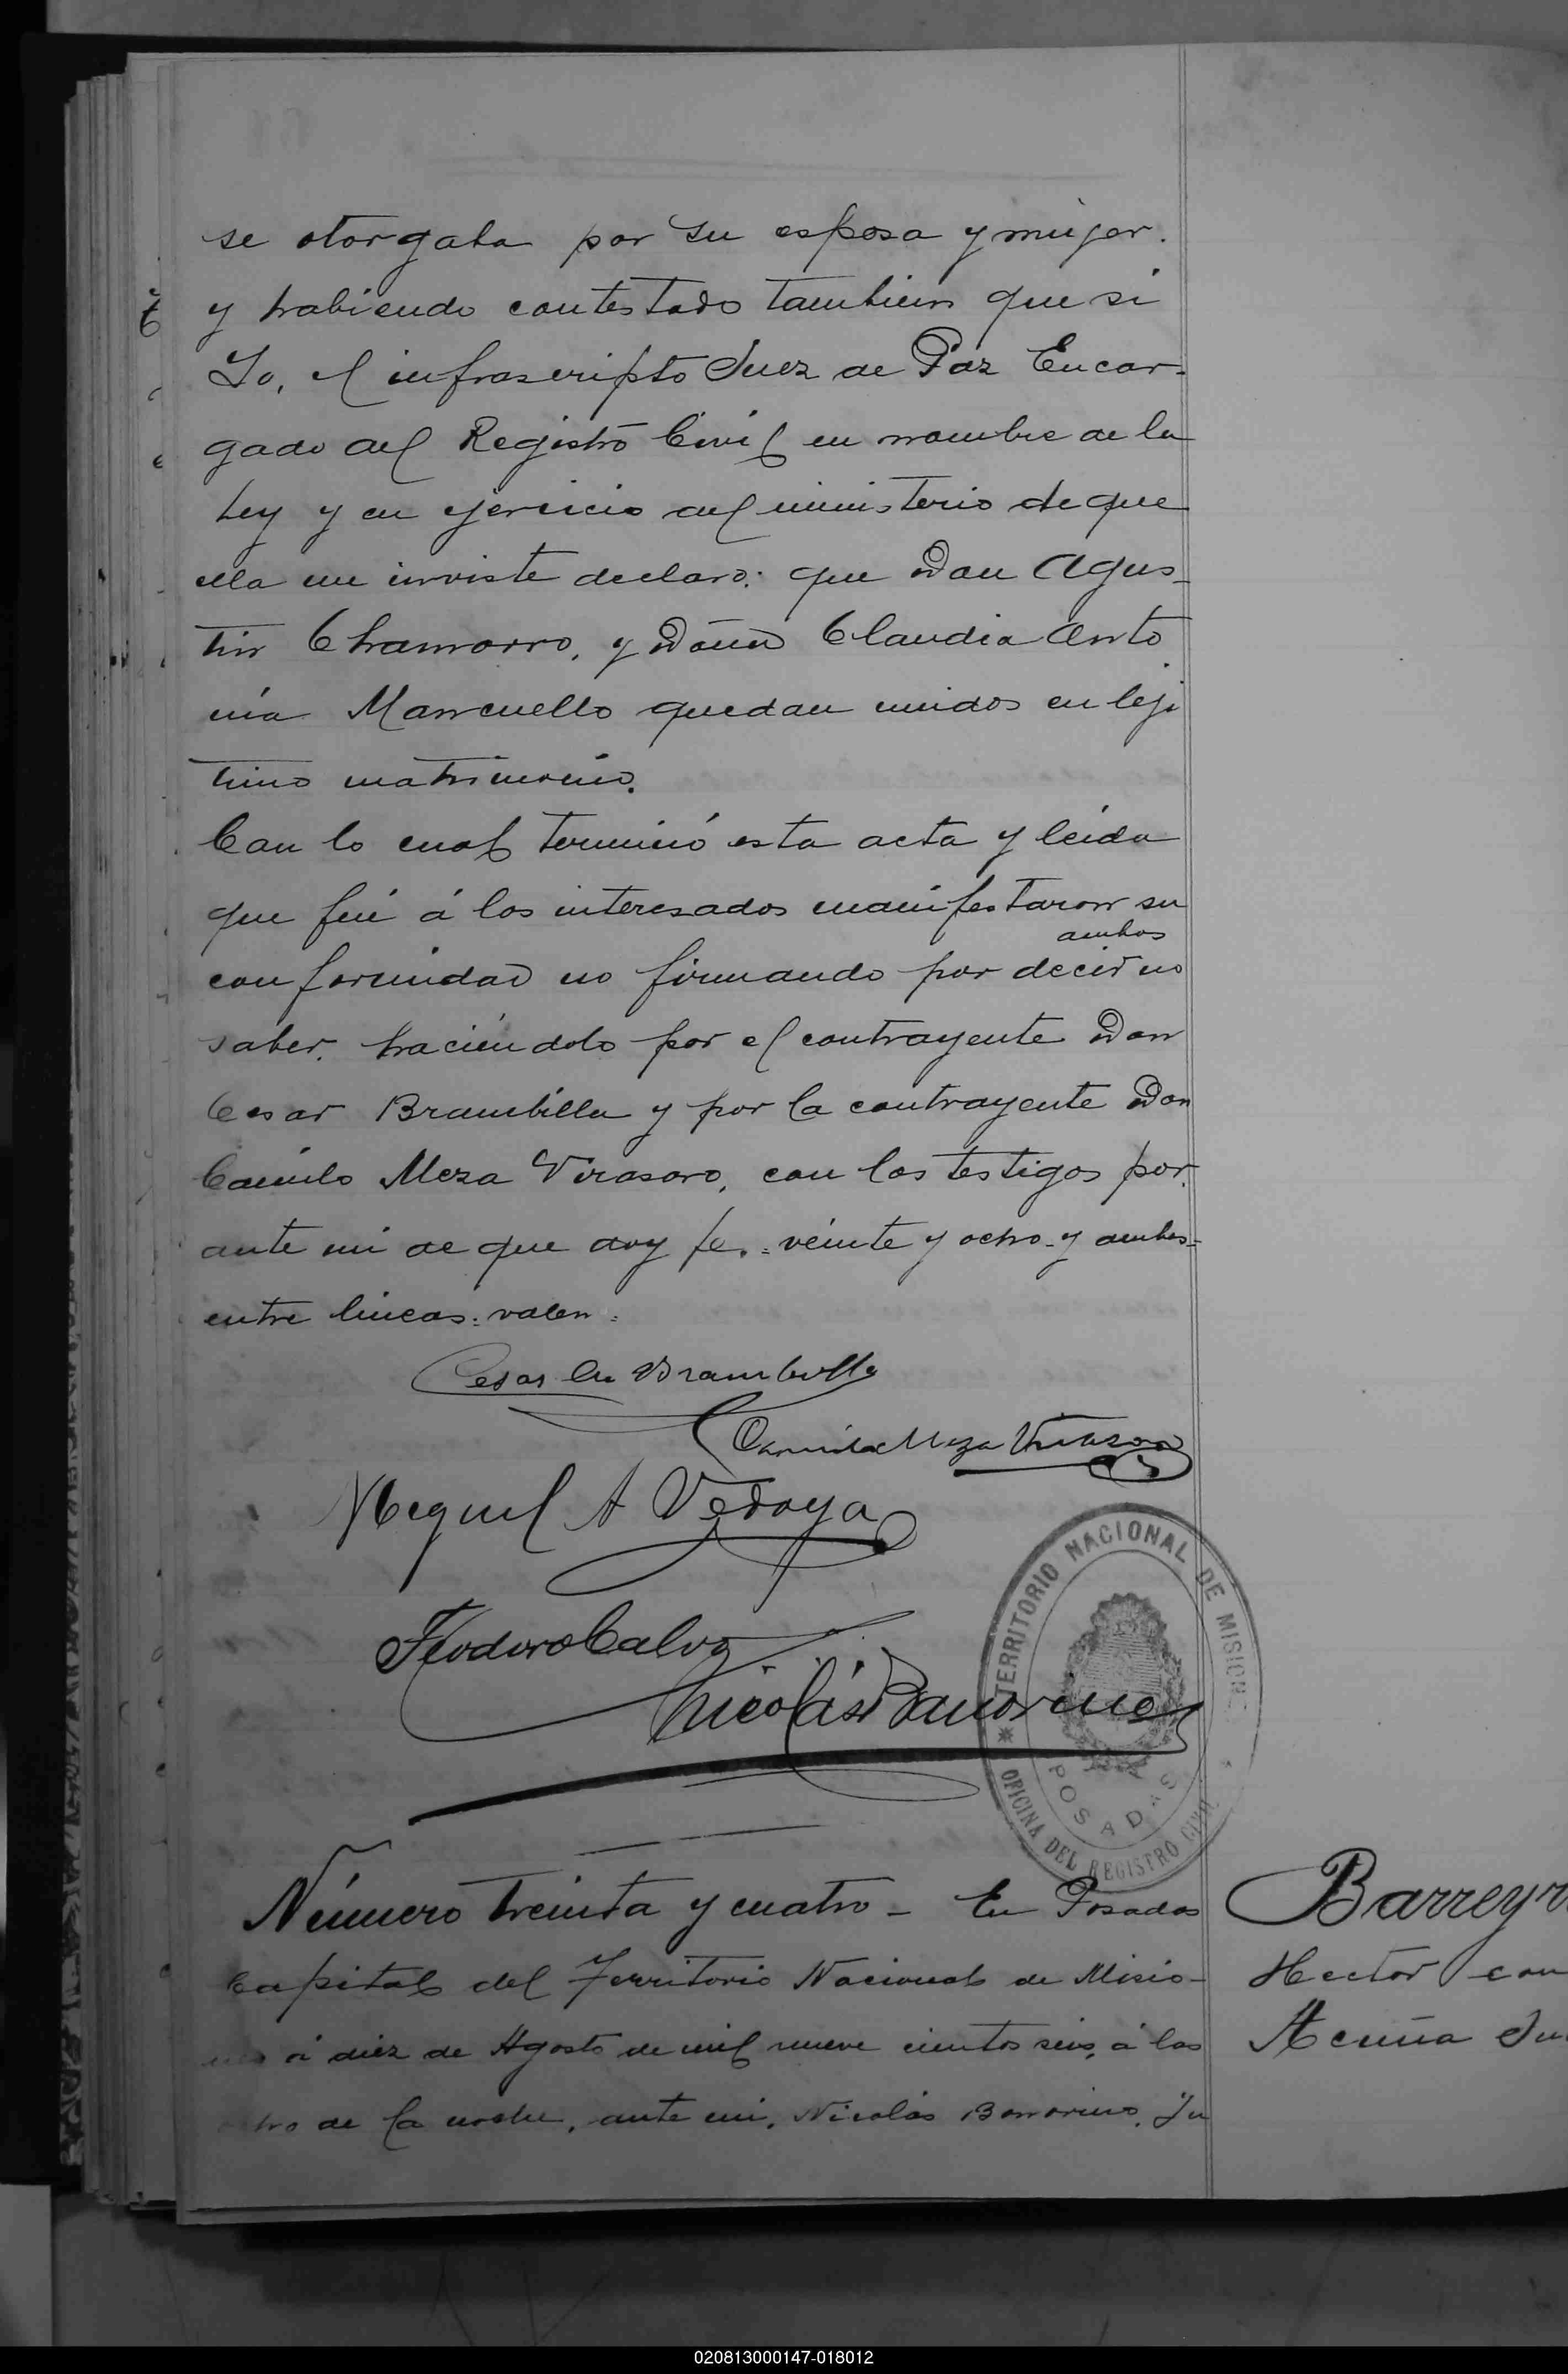 se otorgaba por su esposa y mujer.
y habiendo contestado tambien que si
Yo, el infrascripto Juez de Paz Encar-
gado del Registro Civil en nombre de la
Ley y en ejercicio del ministerio de que
ella me inviste declaro: que Don Agus-
tin Chamorro, y Doña Claudia Anto
nia Mancuello quedan unidos en leji
timo matrimonio.
Con lo cual terminó esta acta y leida
que fué á los interesados manifestaron su
ambos
conformidad no firmando por decir no
saber. haciéndolo por el contrayente Don
Cesar Brambilla y por la contrayente Don
Camilo Meza Virasoro, con los testigos por
ante mi de que doy fe.= veinte y ocho - y ambos=
entre lineas: valen:
Cesar Brambilla
Camilo Meza Virasoro
Miguel A Vedoya
Teodoro Calvo
Nicolás Bonorino
TERRITORIO NACIONAL DE MISIONES
POSADAS
OFICINA DEL REGISTRO CIVIL
Número treinta y cuatro - En Posadas
Capital del Territorio Nacional de Misio-
nes á diez de Agosto de mil nueve cientos seis, á las
de la noche, ante mi, Nicolás Bonorino, Ju
Barreyr
Hector con
Acuña Ju
020813000147-018012